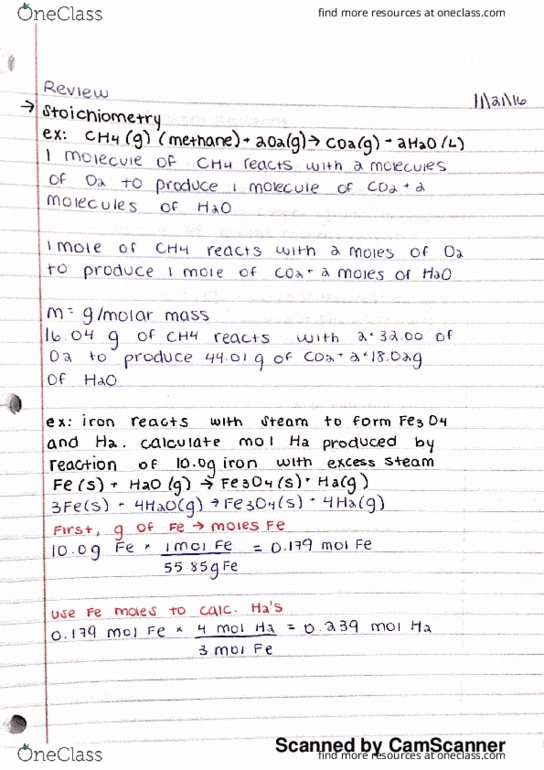 OneClass
find more resources at oneclass.com
Review
1/21/16
→ Stoichiometry
ex: CH4 (g) (methane) + 2O2(g) → CO2(g) + 2H2O (L)
1 molecule of CH4 reacts with 2 molecules
of O2 to produce 1 molecule of CO2 + 2
molecules of H2O
1 mole of CH4 reacts with 2 moles of O2
to produce 1 mole of CO2 + 2 moles of H2O
m = g/molar mass
16.04 g of CH4 reacts with 2·32.00 of
O2 to produce 44.01 g of CO2 + 2·18.02g
of H2O
ex: iron reacts with steam to form Fe3O4
and H2. calculate mol H2 produced by
reaction of 10.0g iron with excess steam
Fe (s) + H2O (g) → Fe3O4 (s) + H2(g)
3Fe(s) + 4H2O(g) → Fe3O4(s) + 4H2(g)
First, g of Fe → moles Fe
10.0g Fe × 1 mol Fe = 0.179 mol Fe
55.85g Fe
use Fe moles to calc. H2's
0.179 mol Fe × 4 mol H2 = 0.239 mol H2
3 mol Fe
Scanned by CamScanner
OneClass
find more resources at oneclass.com